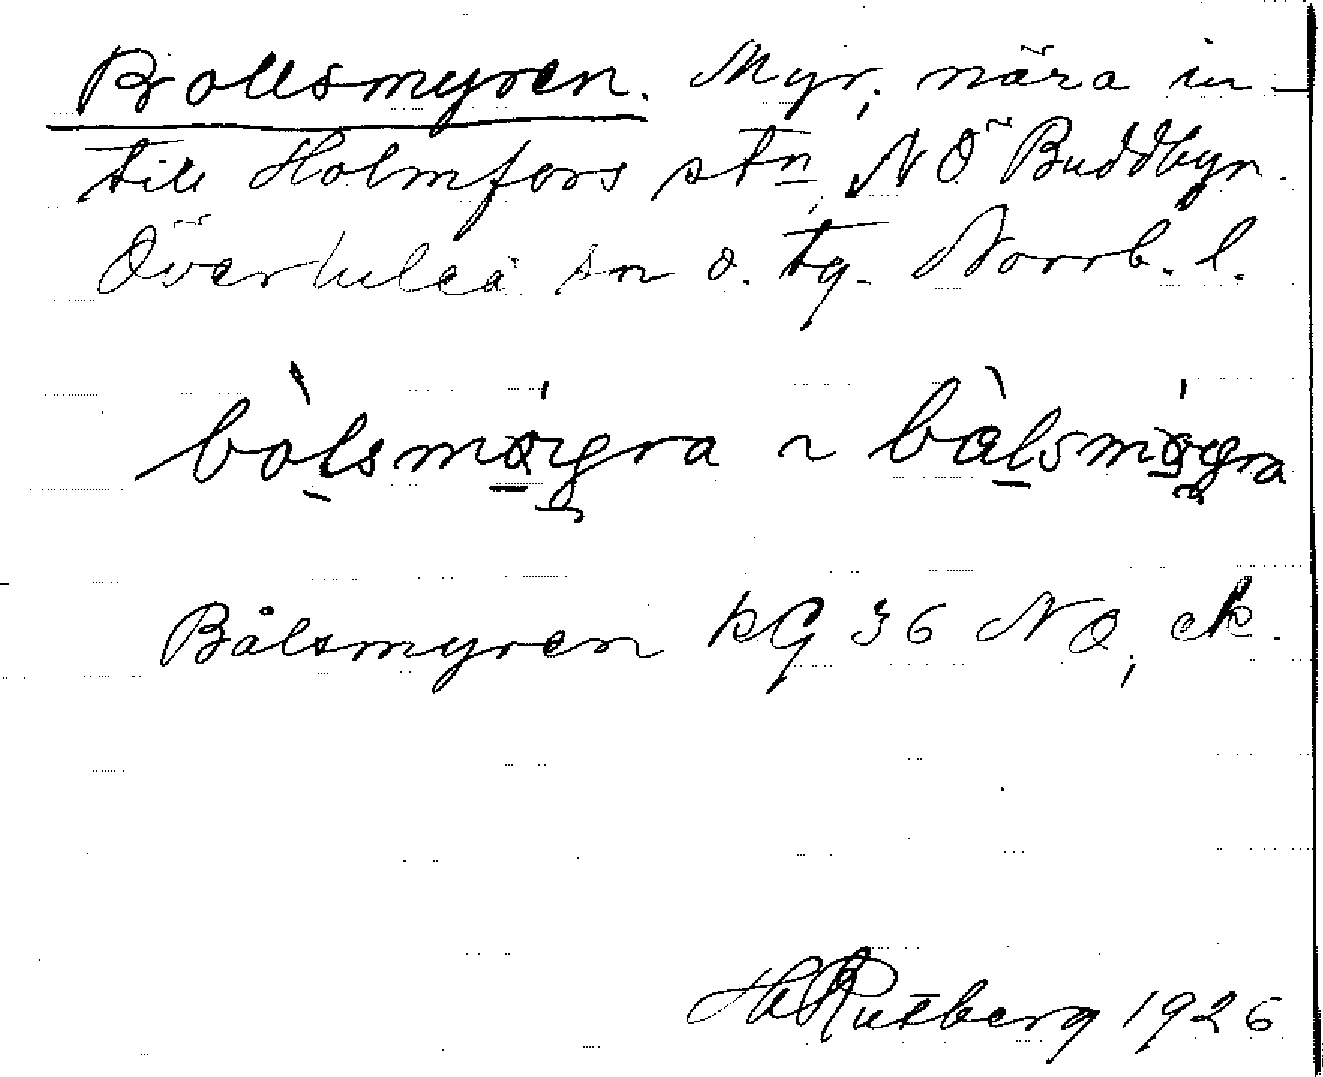 Bollsmyren. Myr, nära in-
till Holmfors stn, NÖ Buddbyn.
Överluleå sn o. tg. Norrb. l.
Bålsmyren kg 36 NO, ek.
Hd Rutberg 1926